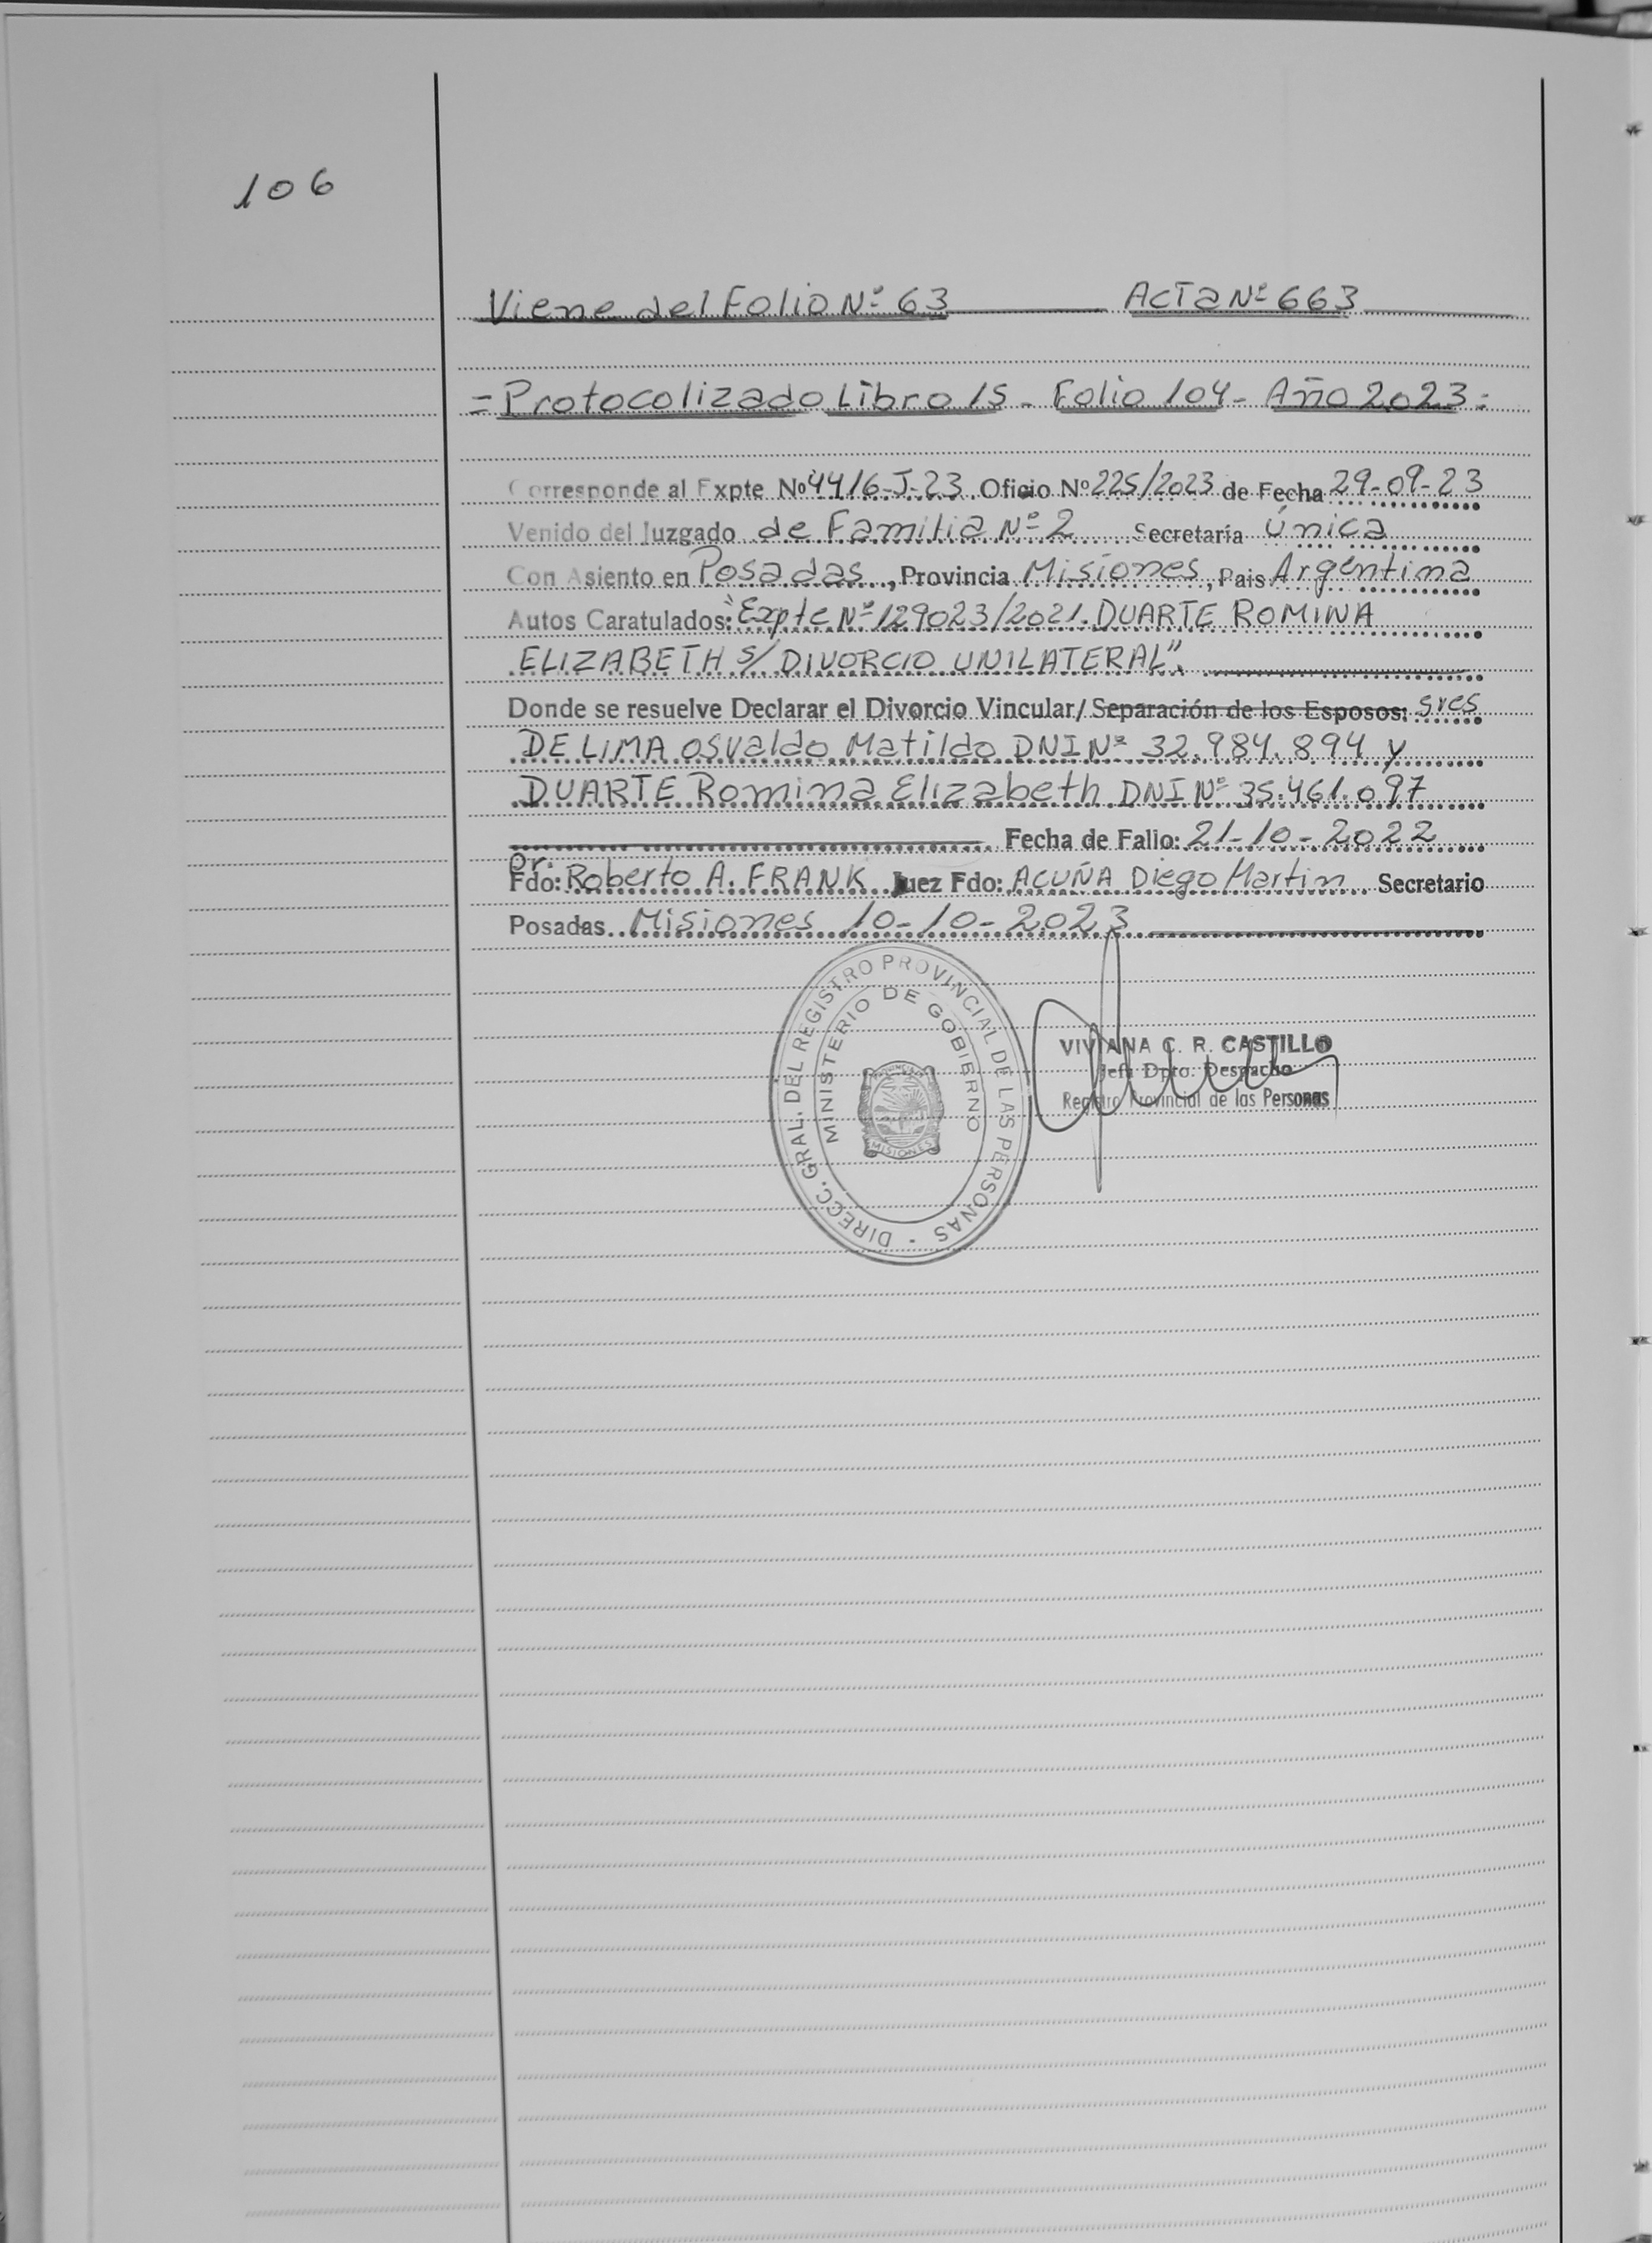 106
Viene del Folio Nº 63 Acta Nº 663
= Protocolizado Libro 15 - Folio 104 - Año 2023 =
Corresponde al Expte Nº 4416-J-23 Oficio Nº 225/2023 de Fecha 29-09-23
Venido del Juzgado de Familia Nº 2 Secretaría Única
Con Asiento en Posadas, Provincia Misiones, Pais Argentina
Autos Caratulados: "Expte Nº 129023/2021. DUARTE ROMINA
ELIZABETH S/ DIVORCIO UNILATERAL".
Donde se resuelve Declarar el Divorcio Vincular/ Separación de los Esposos: Sres
DE LIMA Osvaldo Matildo DNI Nº 32.984.894 y
DUARTE Romina Elizabeth DNI Nº 35.461.097
Fecha de Fallo: 21-10-2022
Fdo: Dr. Roberto A. FRANK Juez Fdo: ACUÑA Diego Martin Secretario
Posadas Misiones 10-10-2023
DIRECC. GRAL. DEL REGISTRO PROVINCIAL DE LAS PERSONAS -
MINISTERIO DE GOBIERNO
MISIONES
VIVIANA C. R. CASTILLO
Jefa Dpto. Despacho
Registro Provincial de las Personas